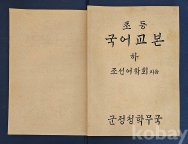 초등
국어교본
하
조선어학회 지음
군정청학무국
kobay